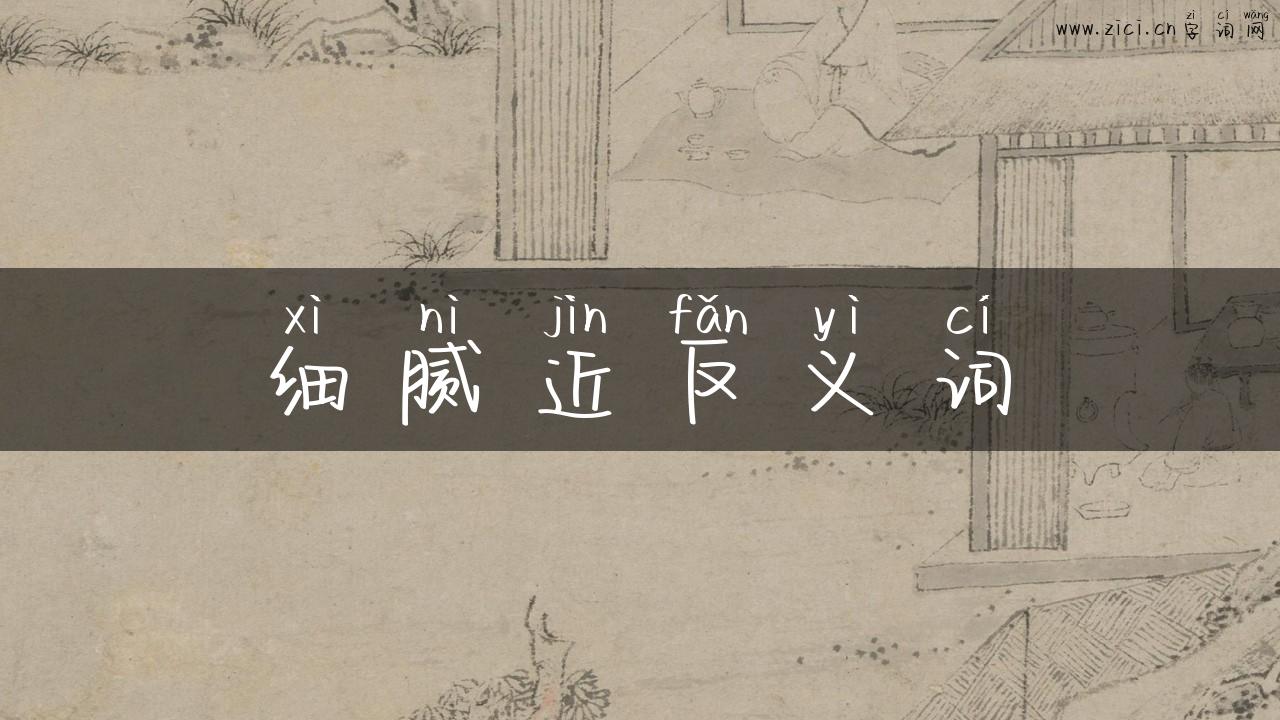 zì cí wǎng
www.zici.cn 字词网
xì nì jìn fǎn yì cí
细腻近反义词